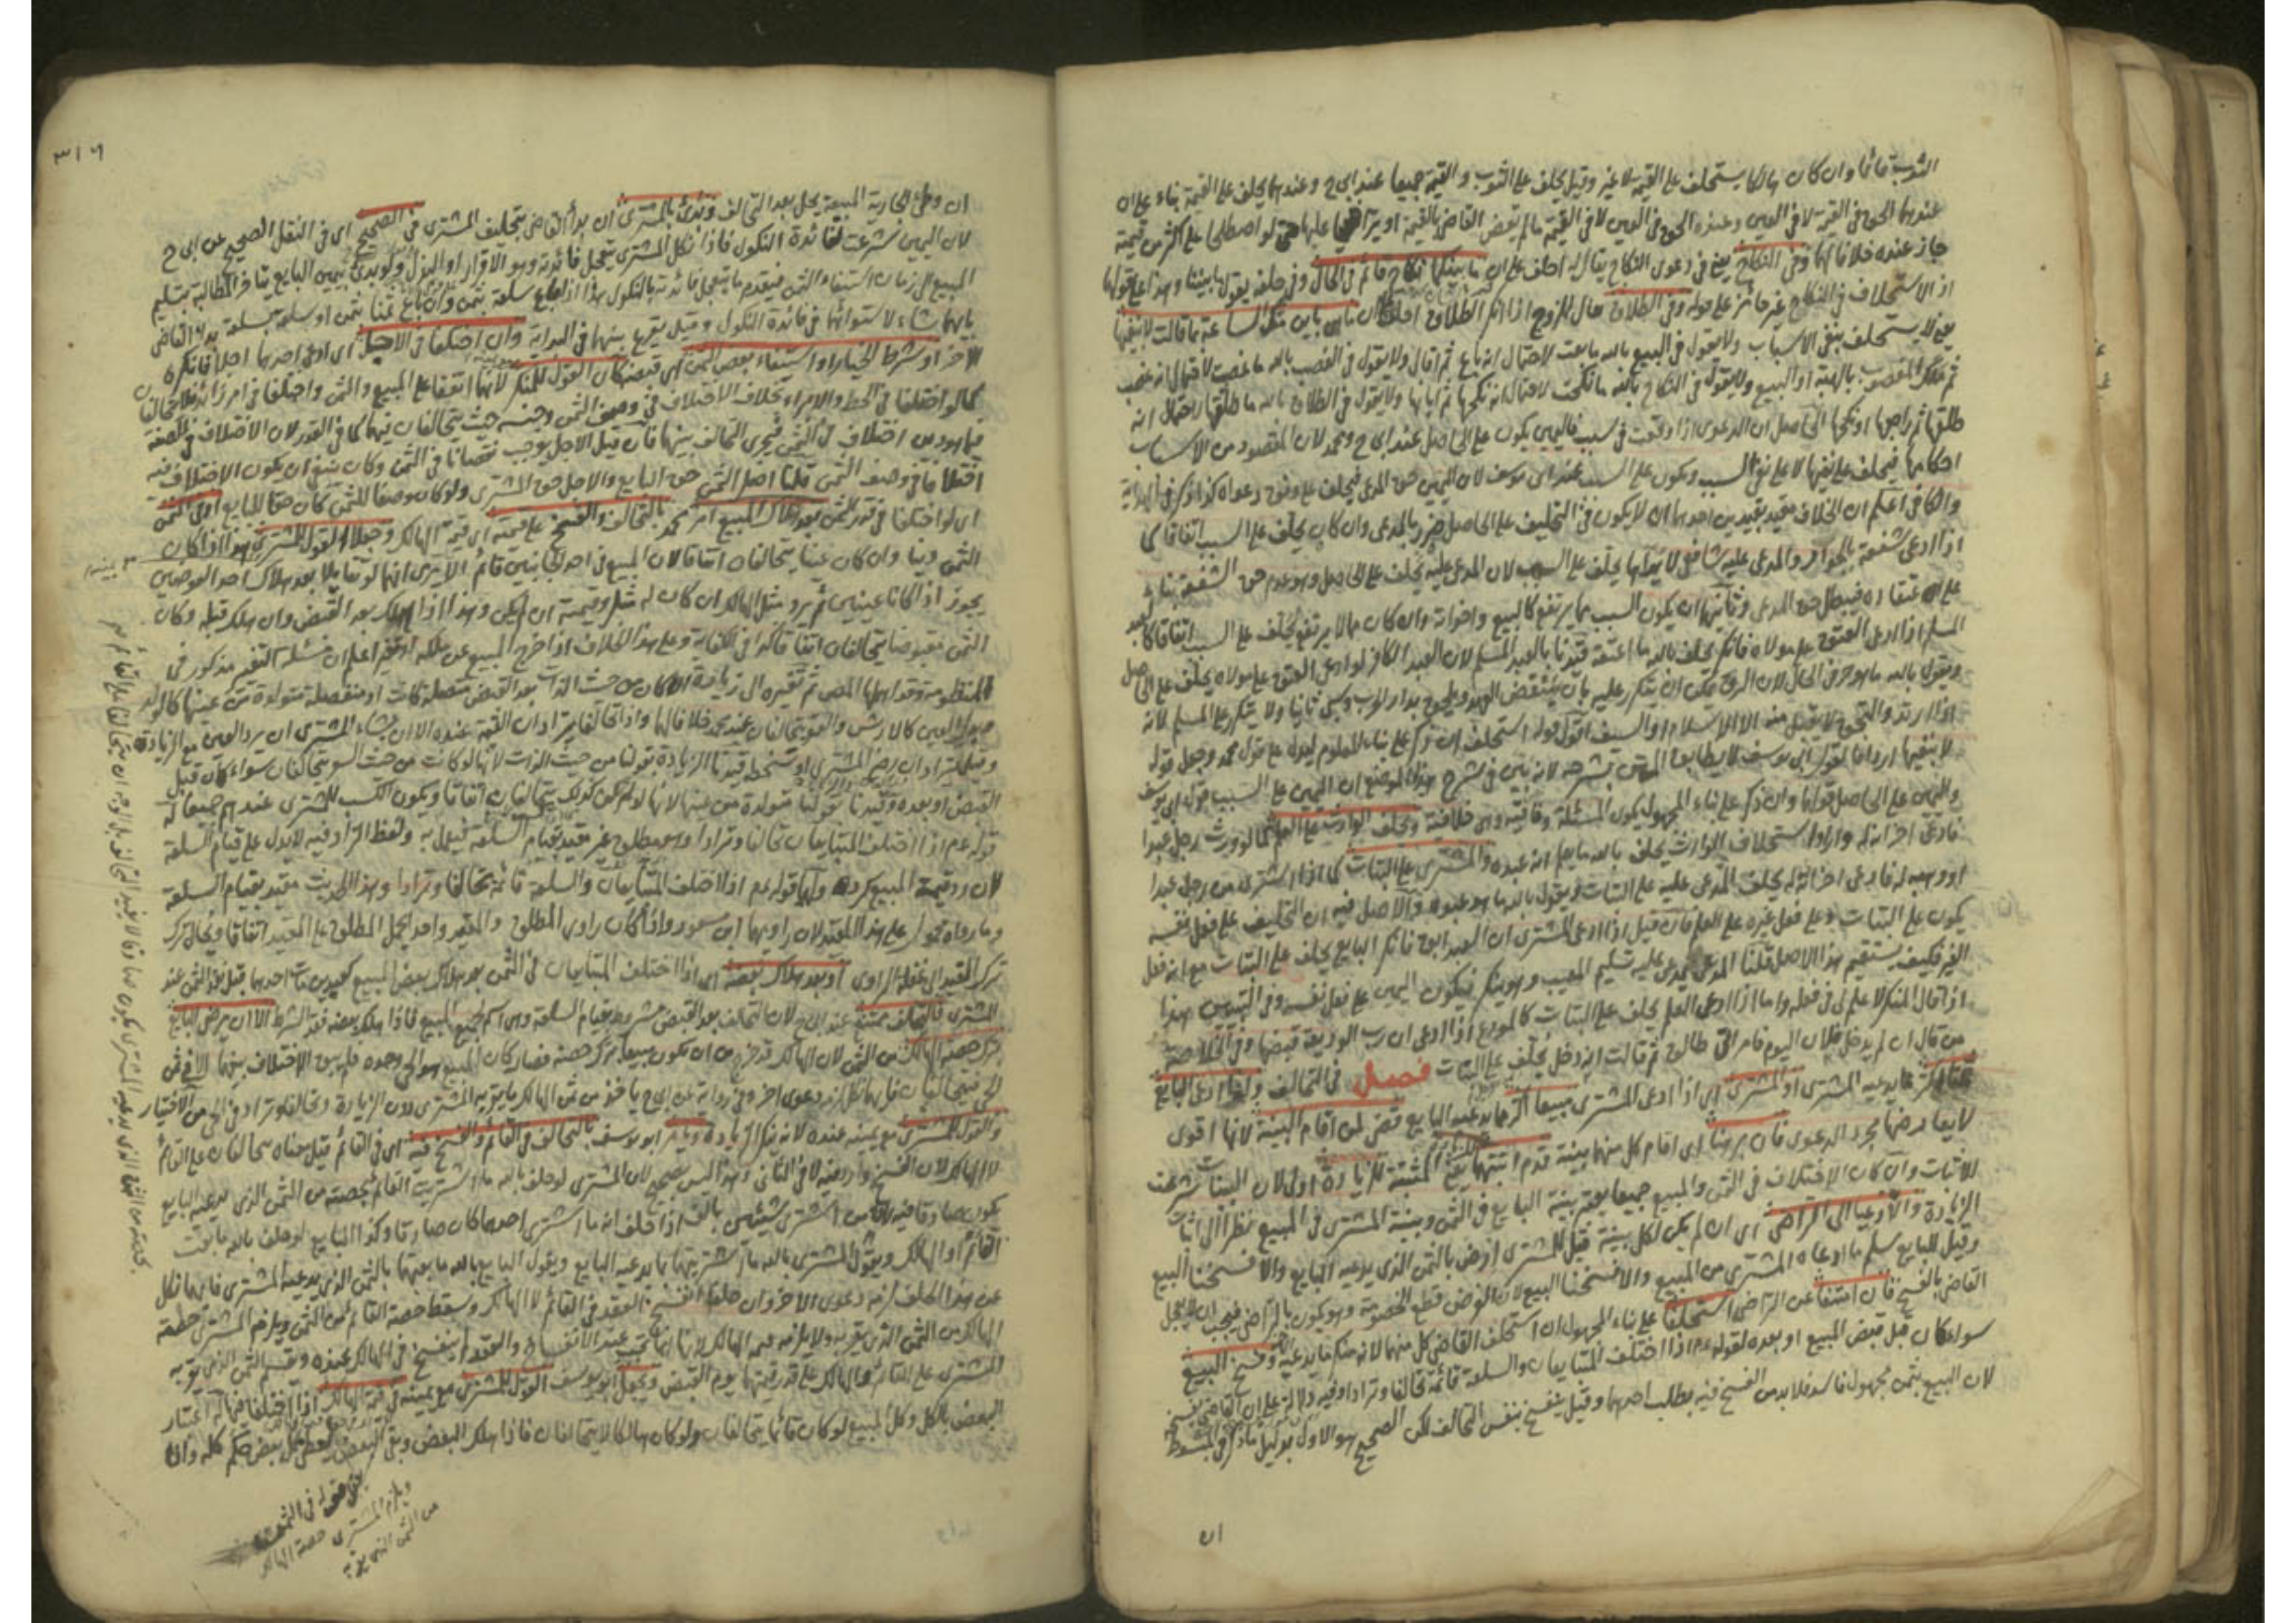 الثوب قائما وان كان هالكا يستحلف على القيمة لا غير وقيل يحلف على الثوب والقيمة جميعا عند ابي ح وعندهما يحلف على القيمة بناء على ان
عندهما الحق في القيمة لا في العين وعنده الحق في العين لا في القيمة مالم يقض القاضي بالقيمة او يتراضيا عليها حتى لو اصطلحا على اكثر من قيمته
جاز عنده خلافا لهما وفي النكاح يعني في دعوى النكاح يقال له احلف على ان ما بينكما نكاح قائم في الحال وفي حلفه يقول ما بيننا وهذا على قولهما
اذ الاستحلاف في النكاح غير جائز على قوله وفي الطلاق يقال للزوج اذا انكر الطلاق احلف ما هي باين منك الساعة بما قالت لا بنفيها
يعني لا يستحلف بنفي الاسباب ولا يقول في البيع بالله ما بعت لاحتمال انه باع ثم اقال ولا يقول في الغصب بالله ما غصبت لاحتمال انه غصب
ثم ملك المغصوب بالهبة او البيع ولا يقول في النكاح بالله ما نكحت لاحتمال انه نكحها ثم ابانها ولا يقول في الطلاق بالله ما طلقها لاحتمال انه
طلقها ثم راجعها او نكحها الحاصل ان الدعوى اذا وقعت في سبب فاليمين يكون على الحاصل عند ابي ح ومحمد لان المقصود من الاسباب
احكامها فيحلف على نفيها لا على نفي السبب ويكون على السبب عند ابي يوسف لان اليمين حق المدعي فيحلف على وفق دعواه كذا ذكر في الهداية
والكافي اعلم ان الخلاف مقيد بقيدين احدهما ان لا يكون في التحليف على الحاصل ضرر بالمدعي وان كان يحلف على السبب اتفاقا كما
اذا ادعى شفعة بالجوار والمدعى عليه شافعي لا يراها يحلف على السبب لان المدعى عليه يحلف على الحاصل وهو عدم حق الشفعة بناء
على اعتقاده فيبطل حق المدعي وثانيهما ان يكون السبب مما يرتفع كالبيع واخواته وان كان مما لا يرتفع يحلف على السبب اتفاقا كالعبد
المسلم اذا ادعى العتق على مولاه فانكر يحلف بالله ما اعتقه قيدنا بالعبد المسلم لان العبد الكافر لو ادعى العتق على مولاه يحلف على الحاصل
ويقول بالله ما هو حر في الحال لان الرق يمكن ان يتكرر عليه بان ينقض العهد ويلحق بدار الحرب وسبي ثانيا ولا يتكرر على المسلم لانه
اذا ارتد والتحق لا يقبل منه الا الاسلام او السيف اقول قوله استحلف ان ذكر على بناء المعلوم ليدل على قول محمد وجعل قوله
واليمين على الحاصل قولهما وان ذكر على بناء المجهول يكون المسئلة وفاقية وهي خلافية ويحلف الوارث على العلم كما لو ورث رجل عبدا
فادعى اخر انه له واراد استحلاف الوارث يحلف بالله ما يعلم انه عبده والمشتري على البتات كما اذا اشترى من رجل عبدا
او وهب له فادعى اخر انه له يحلف المدعى عليه على البتات ويقول بالله ما هو عبده والاصل فيه ان التحليف على فعل نفسه
يكون على البتات وعلى فعل غيره على العلم فان قيل اذا ادعى المشتري ان العبد ابق فانكر البايع يحلف على البتات مع انه فعل
الغير فكيف يستقيم هذا الاصل قلنا المدعي يدعي عليه تسليم المعيب وهو ينكر فيكون اليمين على فعل نفسه وفي
اذا قال المنكر لا علم لي في فعله واما اذا ادعى العلم يحلف على البتات كالمودع اذا ادعى ان رب الوديعة قبضها وفي الخلاصة
من قال ان لم يدخل فلان اليوم فامراتي طالق ثم قالت انه دخل يحلف على البتات فصل في التحالف ولو ادعى البايع
ثمنا اكثر مما يدعيه المشتري او المشتري اي اذا ادعى المشتري مبيعا اكثر مما يدعيه البايع قضي لمن اقام البينة لانها اقوى
لا يعارضها مجرد الدعوى فان برهنا اي اقام كل منهما بينة قدم اثبتهما يعني المثبتة للزيادة اولى لان البينات شرعت
للاثبات وان كان الاختلاف في الثمن والمبيع جميعا يعتبر بينة البايع في الثمن وبينة المشتري في المبيع نظرا الى اثبات
الزيادة والا دعيا الى التراضي اي ان لم يكن لكل بينة قيل للمشتري ارض بالثمن الذي يدعيه البايع والا فسخنا البيع
وقيل للبايع سلم ما ادعاه المشتري من المبيع والا فسخنا البيع لان الغرض قطع الخصومة وهو يكون بالتراضي فيجب ان لا يعجل
القاضي بالفسخ فان امتنعا عن التراضي استحلفا على بناء المجهول اي استحلف القاضي كل منهما لانه منكر ما يدعيه الاخر وفسخ البيع
سواء كان قبل قبض المبيع او بعده لقوله عم اذا اختلف المتبايعان والسلعة قائمة تحالفا وترادا وفيه دلالة على ان القاضي يفسخه
لان البيع بثمن مجهول فاسد فلا بد من الفسخ فيه بطلب احدهما وقيل ينفسخ بنفس التحالف لكن الصحيح هو الاول بدليل ما ذكر في المبسوط
ان
٣١٦
ان وطئ الجارية المبيعة يحل بعد التحالف وبدئ بالمشتري ان بدأ القاضي بتحليف المشتري في الصحيح اي في النقل الصحيح عن ابي ح
لان اليمين شرعت لفائدة النكول فاذا نكل المشتري يتعجل فائدته وهو الاقرار او البذل ولو بدئ بيمين البايع يتاخر المطالبة بتسليم
المبيع الى زمان استيفاء الثمن فيقدم ما يتعجل فائدته بالنكول هذا اذا باع سلعة بثمن وان باع ثمنا بثمن او سلعة بسلعة بدأ القاضي
بايهما شاء لاستوائهما في فائدة النكول وقيل يقرع بينهما في البداية وان اختلفا في الاجل اي ادعى احدهما اجلا فانكره
الاخر او شرط الخيار او استيفاء بعض الثمن اي قبضه كان القول للمنكر لانهما اتفقا على المبيع والثمن واختلفا في امر زائد فلا يتحالفان
كما لو اختلفا في الحط والابراء بخلاف الاختلاف في وصف الثمن وجنسه حيث يتحالفان فيهما كما في القدر لان الاختلاف في الصفة
فيما هو دين اختلاف في الثمن فيجري التحالف بينهما فان قيل الاجل يوجب نقصانا في الثمن وكان ينبغي ان يكون الاختلاف فيه
اختلافا في وصف الثمن قلنا اصل الثمن حق البايع والاجل حق المشتري ولو كان وصفا للثمن كان حقا للبايع او في الثمن
اي لو اختلفا في قدر الثمن بعد هلاك المبيع امر محمد بالتحالف والفسخ على قيمته اي قيمة الهالك وجعلا القول للمشتري هذا اذا كان
الثمن دينا وان كان عينا يتحالفان اتفاقا لان المبيع في احد الجانبين قائم الا يرى انهما لو تقايلا بعد هلاك احد العوضين
يجوز اذا كانا عينين ثم يرد مثل الهالك ان كان له مثل وقيمته ان لم يكن وهذا اذا هلك بعد القبض وان هلك قبله وكان
الثمن مقبوضا يتحالفان اتفاقا كذا في الكفاية وعلى هذا الخلاف اذا خرج المبيع عن ملكه اعلم ان مسئلة التغير مذكور في
المنظومة وقد اهملها المص ثم تغيره الى زيادة ان كان من حيث الذات بعد القبض متصلة كانت او منفصلة متولدة من عينها كالولد
كالارش والعقر يتحالفان عند محمد خلافا لهما واذا تحالفا يترادان القيمة عنده الا ان يشاء المشتري ان يرد العين مع الزيادة
وقيل يترادان رضي المشتري او سخط قيدنا الزيادة بقولنا من حيث الذات لانها لو كانت من حيث السعر يتحالفان سواء كان قبل
القبض او بعده وقيدنا بقولنا متولدة من عينها لانها لو لم تكن كذلك يتحالفان اتفاقا ويكون الكسب للمشتري عندهم جميعا له
قوله عم اذا اختلف المتبايعان تحالفا وترادا وهو مطلق غير مقيد بقيام السلعة فيعمل به ولفظ التراد فيه لا يدل على قيام السلعة
لان رد قيمة المبيع كرده ولهما قوله عم اذا اختلف المتبايعان والسلعة قائمة تحالفا وترادا وهذا الحديث مقيد بقيام السلعة
وما رواه محمول على هذا المقيد لان راويهما ابن مسعود واذا كان راوي المطلق والمقيد واحد يحمل المطلق على المقيد اتفاقا ويحال ترك
ترك القيد الى غفلة الراوي او بعد هلاك بعضه اي اذا اختلف المتبايعان في الثمن بعد هلاك بعض المبيع كعبدين مات احدهما قبل نقد الثمن عند
المشتري فالتحالف ممتنع عند ابي ح لان التحالف بعد القبض مشروط بقيام السلعة وهي اسم لجميع المبيع فاذا هلك بعضه فقد الشرط الا ان يرضى البايع
بترك حصة الهالك من الثمن لان الهالك قد خرج من ان يكون مبيعا بترك حصته فصار كان المبيع هو الحي وحده فلم يبق الاختلاف بينهما الا في ثمن
الحي فيتحالفان فايهما نكل لزمه دعوى اخر وفي رواية عن ابي ح ياخذ من ثمن الهالك ما يقر به المشتري دون الزيادة وتحالفا وترادا في الحي من الاختيار
والقول للمشتري مع يمينه عنده لانه ينكر الزيادة ويامر ابو يوسف بالتحالف في القائم والفسخ فيه اي في القائم قيل معناه يتحالفان على القائم
لا الهالك لان الفسخ وارد فيه لا في الثاني وهذا ليس بصحيح لان المشتري لو حلف بالله ما اشتريت القائم بحصته من الثمن الذي يدعيه البايع
يكون صادقا فيه لان من اشترى شيئين بالف اذا حلف انه ما اشترى احدهما كان صادقا وكذا البايع لو حلف بالله ما بعت
القائم او الهالك ويقول المشتري بالله ما اشتريتهما بما يدعيه البايع ويقول البايع بالله ما بعتهما بالثمن الذي يدعيه المشتري فايهما نكل
عن هذا الحلف لزمه دعوى الاخر وان حلفا انفسخ العقد في القائم لا الهالك وسقط حصة القائم من الثمن ويلزم المشتري حصة
الهالك من الثمن الذي يقر به ولا يلزمه قيمة الهالك لانها انما تجب عند الانفساخ والعقد لم ينفسخ في الهالك عنده وقسم الثمن الذي يقر به
المشتري على القائم والهالك على قدر قيمتهما يوم القبض ويجعل ابو يوسف القول للمشتري مع يمينه في قيمة الهالك اذا اختلفا فيها له اعتبار
البعض بالكل وكل المبيع لو كان قائما يتحالفان ولو كان هالكا لا يتحالفان فاذا هلك البعض وبقي البعض يعطى لكل بعض حكم كله وانا
ويلزم المشتري حصة الهالك
من الثمن الذي يقر به